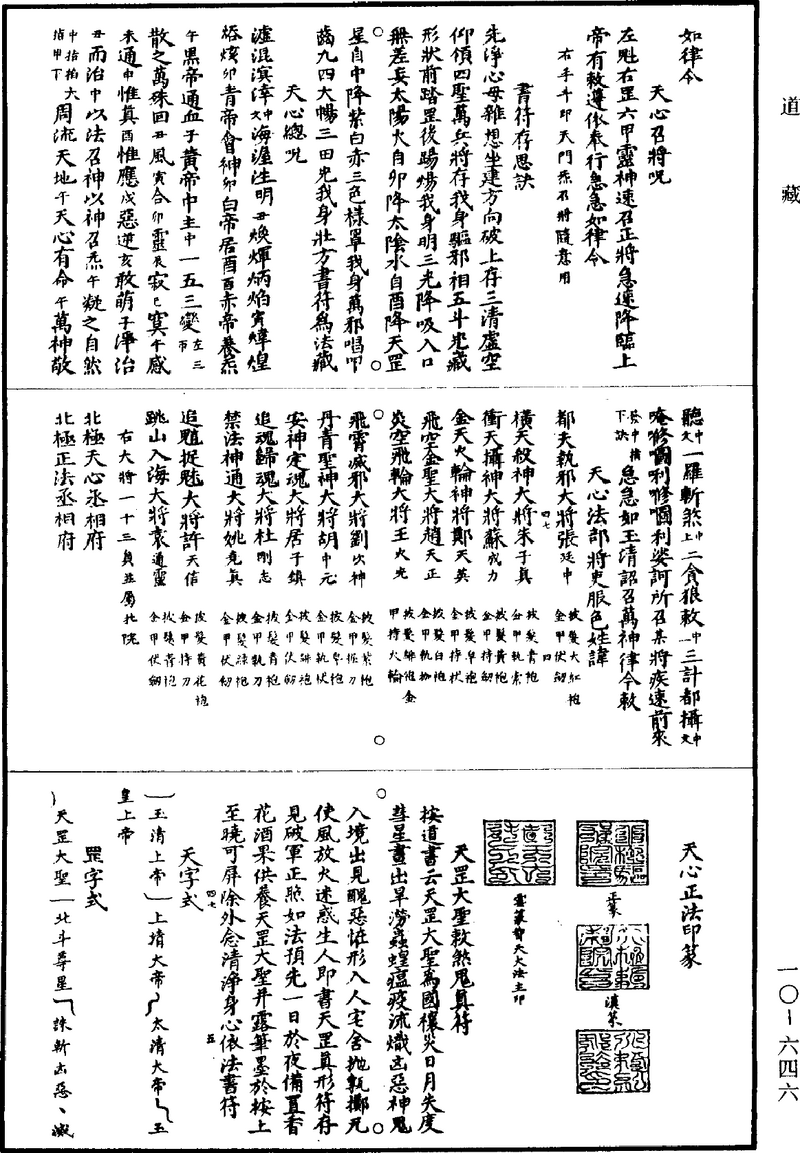 道藏
一〇-六四六
如律令
天心召將呪
左魁右罡六甲靈神速召正將急速降臨上
帝有敕遵依奉行急急如律令
右手斗印天門炁召將隨意用
書符存思訣
先淨心毋雜想坐建方向破上存三清虛空
仰領四聖萬兵將存我身驅邪相五斗光藏
形狀前踏罡後踢煬我身明三光降吸入口
無差妄太陽火自卯降太陰水自酉降天罡
星自中降紫白赤三色樣罩我身萬邪唱叩
齒九四大暢三田光我身壯方書符為法藏
天心總呪
濾混溟涬中文海溼洼明丑煥煇炳焰寅煒煌
卯青帝會神卯白帝居酉酉赤帝養炁
午黑帝通血子黃帝中主中一五三變左三
散之萬殊回丑風寅合卯靈辰寂巳寞午感
未通中惟真酉惟應戌惡逆亥敢萌子淨治
丑而治中以法召神以神召炁午凝之自然
中指掐大指甲下周流天地午天心有命午萬神敬
聽中文一羅斬煞中上二貪狼敕中一三計都攝中文
唵修㘑利修㘑利娑訶所召某將疾速前來
中指下訣急急如玉清詔召萬神律令敕
天心法部將吏服色姓諱
都天執邪大將張廷中 披髮大紅袍金甲伏劒
橫天殺神大將朱子真 披髮青袍金甲執索
衝天攝神大將蘇成力 披髮黃袍金甲持劒
金天火輪神將鄭天英 披髮皂袍金甲持狀
飛空金聖大將趙天正 披髮白袍金甲執
炎空飛輪大將王火光 披髮緋袍金甲持火輪
飛霄滅邪大將劉次神 披髮紫袍金甲仗刀
丹青聖神大將胡中元 披髮皂袍金甲執狀
安神定魂大將居子鎮 披髮緋袍金甲伏劒
追魂歸魂大將杜剛志 披髮青袍金甲執刀
禁法神通大將姚竟真 披髮綠袍金甲伏劒
追䰡捉魅大將許天信 披髮黃花袍金甲持刀
跳山入海大將袁通靈 披髮青袍金甲伏劒
右大將一十三員並屬北院
北極天心丞相府
北極正法丞相府
天心正法印篆
正篆
漢篆
雲篆普天大法主印
天罡大聖敕煞鬼真符
按道書云天罡大聖為國禳災日月失度
彗星晝出旱澇蟲蝗瘟疫流熾凶惡神鬼
入境出見醜惡恠形入人宅舍拋甎擲瓦
使風放火迷惑生人即書天罡真形符存
見破軍正照如法預先一日於夜備置香
花酒果供養天罡大聖并露筆墨於按上
至曉可屏除外念清淨身心依法書符
天字式
玉清上帝上清大帝太清大帝玉
皇上帝
罡字式
天罡大聖北斗尊星誅斬凶惡滅